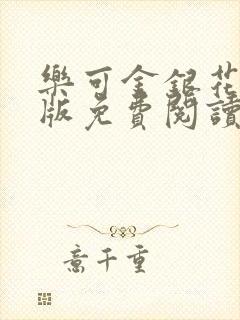 樂可金銀花
版免費閱讀
意千重